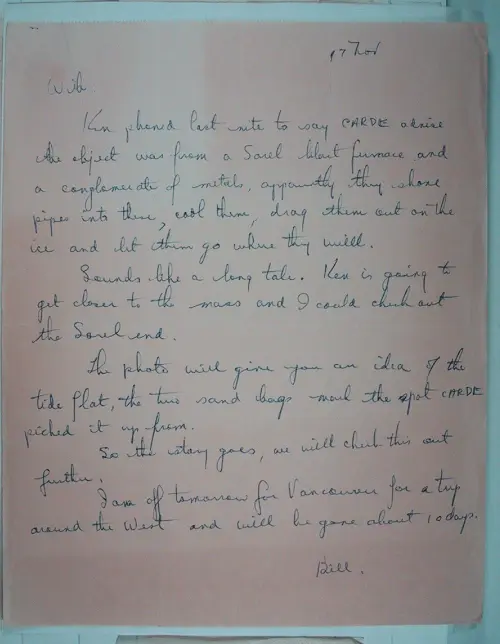 17 Nov
Wilb.
Ken phoned last nite to say CARDE advise
the object was from a Sorel blast furnace and
a conglomerate of metals, apparently they shove
pipes into these, cool them, drag them out on the
ice and let them go where they will.
Sounds like a long tale. Ken is going to
get closer to the mass and I could check out
the Sorel end.
The photo will give you an idea of the
tide flat, the two sand bags mark the spot CARDE
picked it up from.
So the story goes, we will check this out
further.
I am off tomorrow for Vancouver for a trip
around the West and will be gone about 10 days.
Bill.